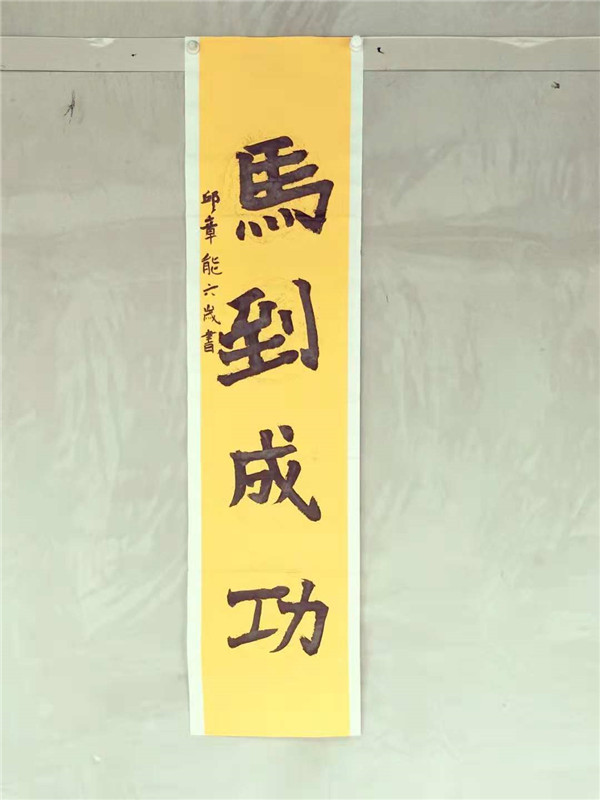 馬到成功
邱章能六歲書